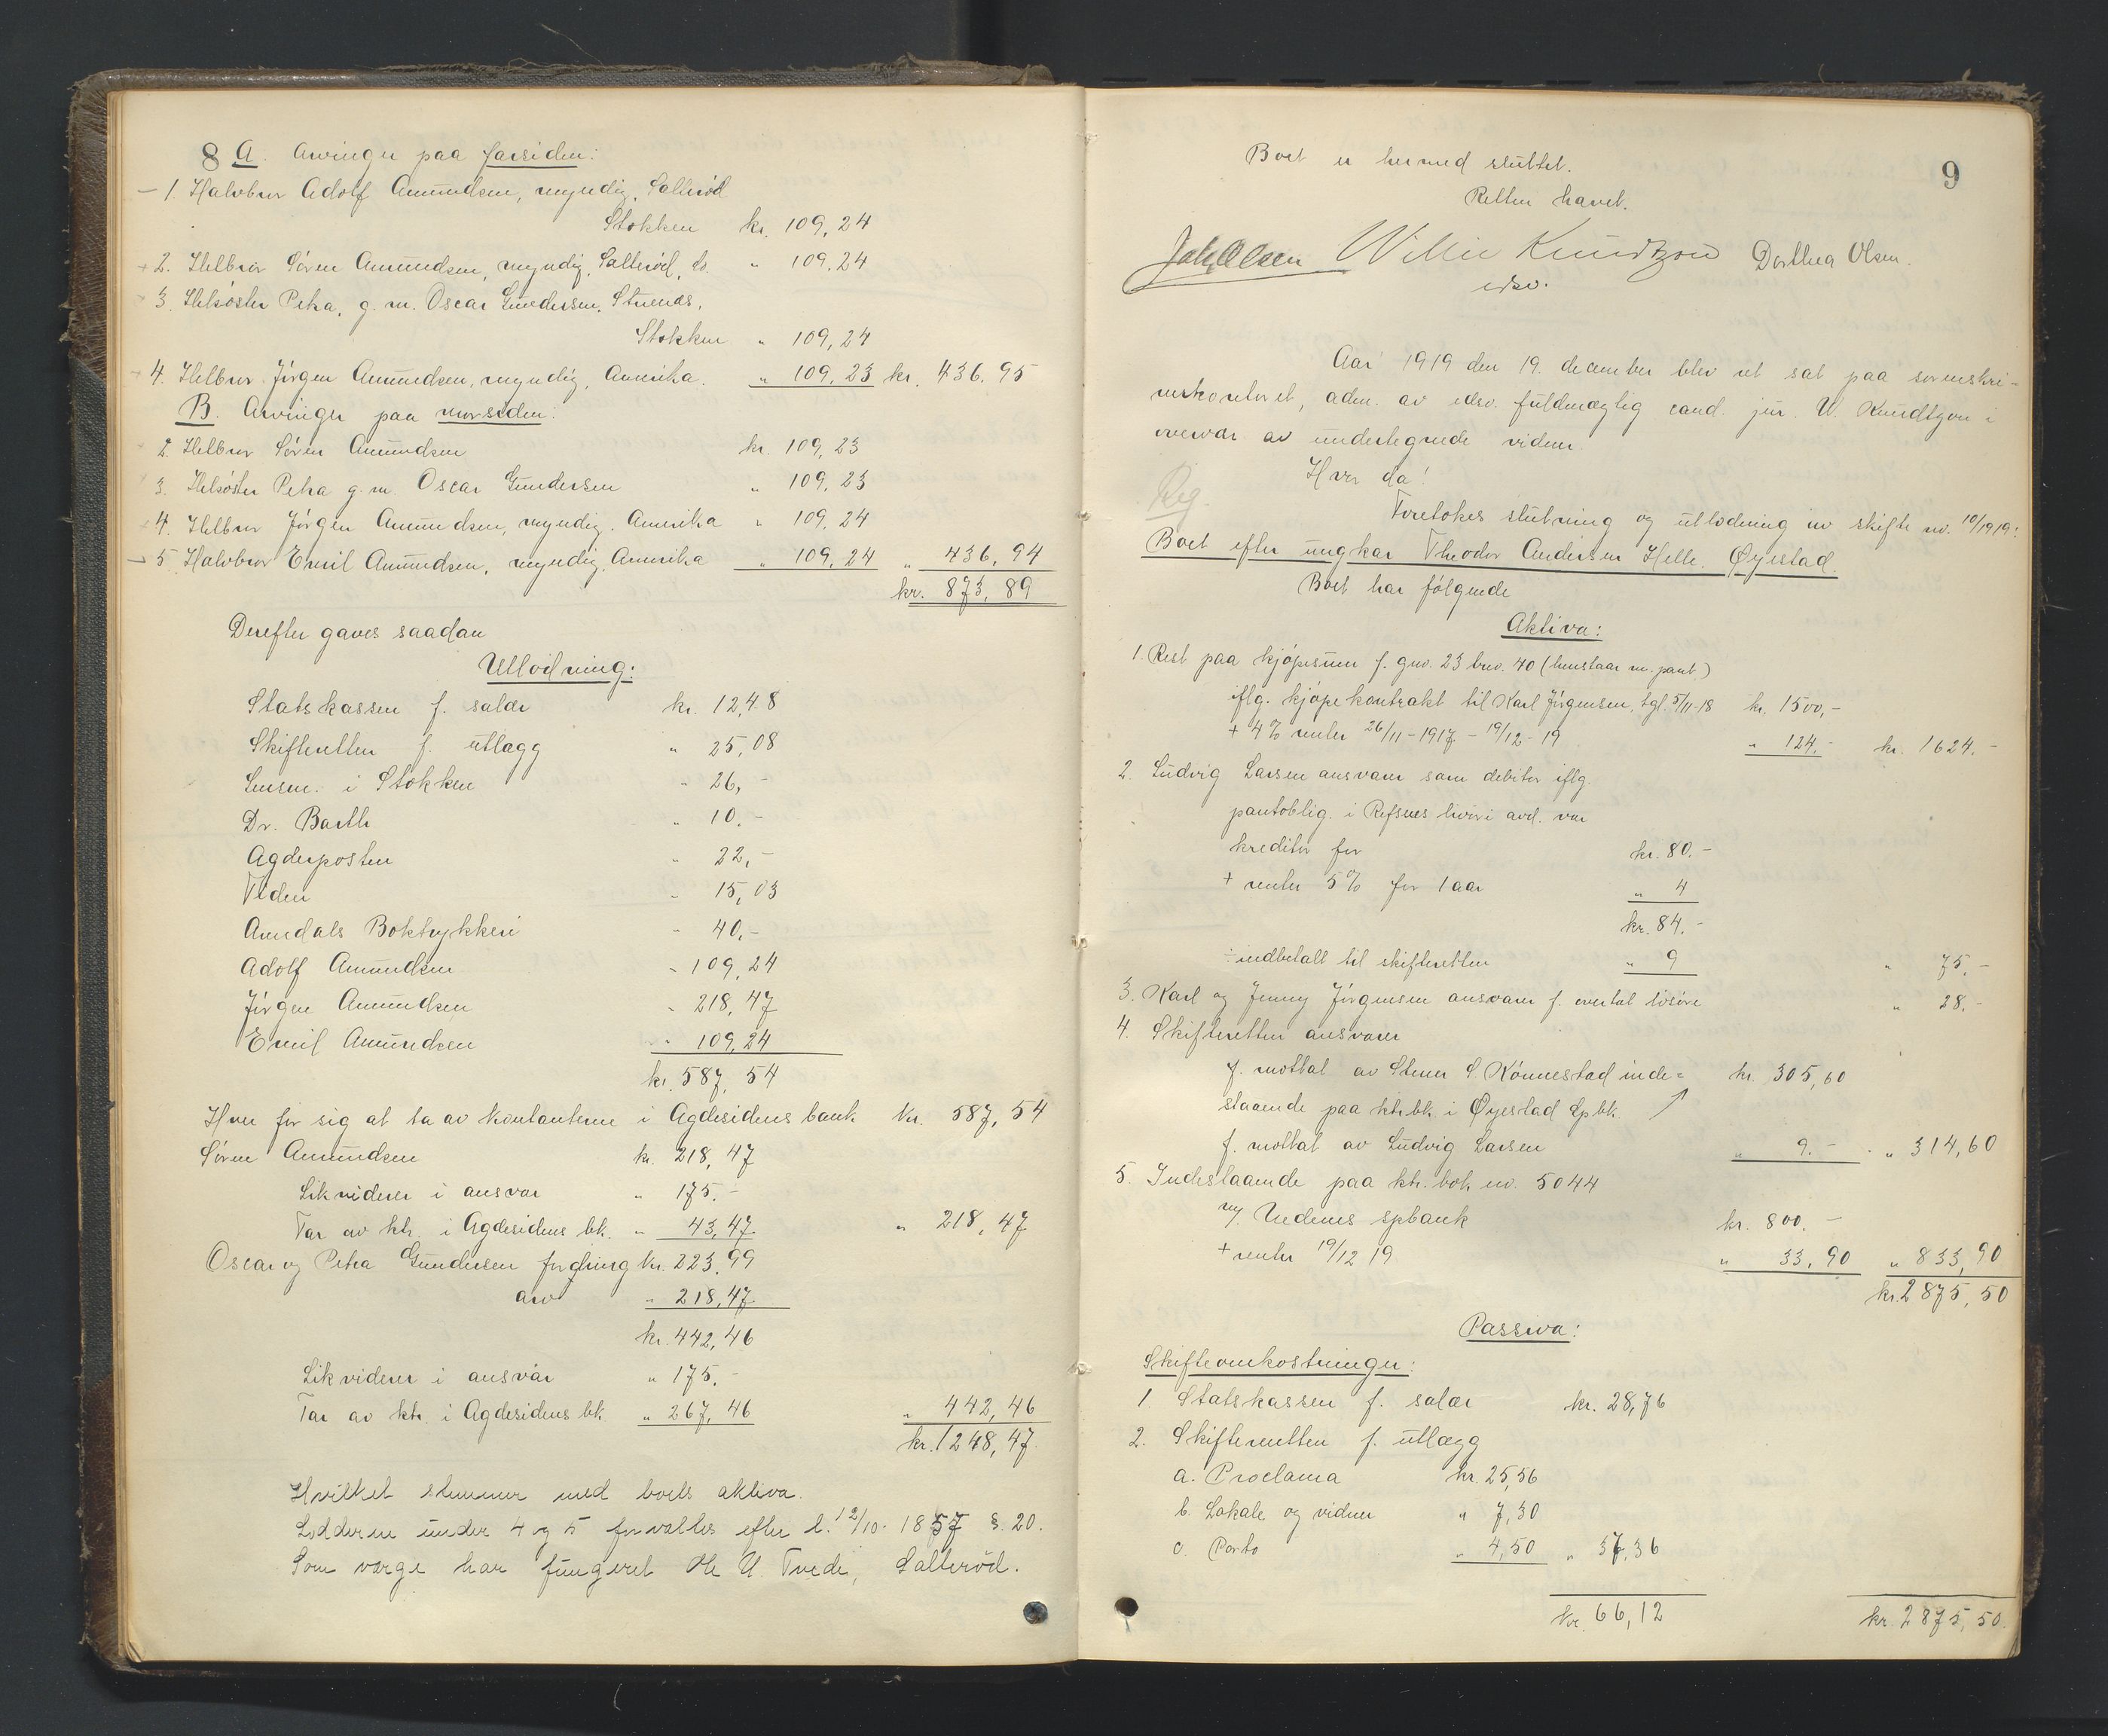 8 A. Arvinger paa farsiden:
1. Halvbror Adolf Amundsen, myndig, Salterød
Stokken kr. 109,24
2. Helbror Søren Amundsen, myndig, Salterød, do. " 109,24
3. Helsøster Petra, g. m. Oscar Gundersen, Strænes,
Stokken " 109,24
4. Helbror Jørgen Amundsen, myndig, Amerika. " 109,23 kr. 436,95
B. Arvinger paa morsiden:
2. Helbror Søren Amundsen kr. 109,23
3. Helsøster Petra g. m. Oscar Gundersen " 109,23
4. Helbror Jørgen Amundsen, myndig, Amerika " 109,24
5 Halvbror Emil Amundsen, myndig, Amerika " 109,24 " 436,94
kr. 873,89
Derefter gaves saadan
Utlodning:
Statskassen f. salær kr. 12,48
Skifteretten f. utlægg " 25,08
Lensm. i Stokken " 26,-
Dr. Barth " 10.-
Agderposten " 22,-
Tiden " 15,03
Arendals Boktrykkeri " 40,-
Adolf Amundsen " 109,24
Jørgen Amundsen " 218,47
Emil Amundsen " 109,24
kr. 587,54
Hver for sig at ta av kontanterne i Agdesidens bank kr. 587,54
Søren Amundsen kr. 218,47
Likviderer i ansvar " 175.-
Tar av ktr. i Agdesidens bk. " 43,47 " 218,47
Oscar og Petra Gundersen fordring kr. 223,99
arv " 218,47
kr. 442,46
Likviderer i ansvar " 175.-
Tar av ktr. i Agdesidens bk " 267,46 " 442,46
kr. 1248,47
Hvilket stemmer med boets aktiva.
Lodderne under 4 og 5 forvaltes efter l. 12/10. 1857 §. 20.
Som værge har fungeret Ole U. Tvede, Salterød.
9
Boet er hermed sluttet.
Retten hævet.
Joh. Olsen Willie Knudtzon Dorthea Olsen.
edsv.
Aar 1919 den 19. december blev ret sat paa sorenskri-
verkontoret, adm. av edsv. fuldmægtig cand. jur. W. Knudtzon i
overvær av undertegnede vidner
Hvor da!
Reg.
Foretokes slutning og utlodning av skifte nr. 10/1919:
Boet efter ungkar Theodor Andersen Helle. Øyestad.
Boet har følgende
Aktiva:
1. Rest paa kjøpesum f. gnr. 23 brnr. 40 (henstaar m. pant)
iflg. kjøpekontrakt til Karl Jørgensen, tgl. 5/11-18 kr. 1500,-
+ 4% renter 26/11-1917 - 19/12-19 " 124.- kr. 1624.-
2. Ludvig Larsen ansvarer som debitor iflg.
pantoblig. i Refsnes hvori avd. var
kreditor for kr. 80.-
+ renter 5% for 1 aar " 4
kr. 84.-
÷ indbetalt til skifteretten " 9 " 75.-
3. Karl og Jenny Jørgensen ansvarer f. overtat løsøre " 28.-
4. Skifteretten ansvarer
f. mottat av Stener S Rønnestad inde= kr. 305,60
staaende paa ktr.bk. i Øyestad Spbk.
f. mottat av Ludvig Larsen " 9.- " 314,60
5. Indestaaende paa ktr. bok nr. 5044
m/ Nedenes spbank kr. 800.-
+ renter 19/12 19 " 33,90 " 833,90
kr. 2875,50
Passiva:
Skifteomkostninger:
1. Statskassen f. salær kr. 28,76
2. Skifteretten f. utlægg
a. Proclama kr. 25,56
b. Lokale og vidner " 7,30
c. Porto " 4,50 " 37,36
kr. 66,12 kr. 2875,50